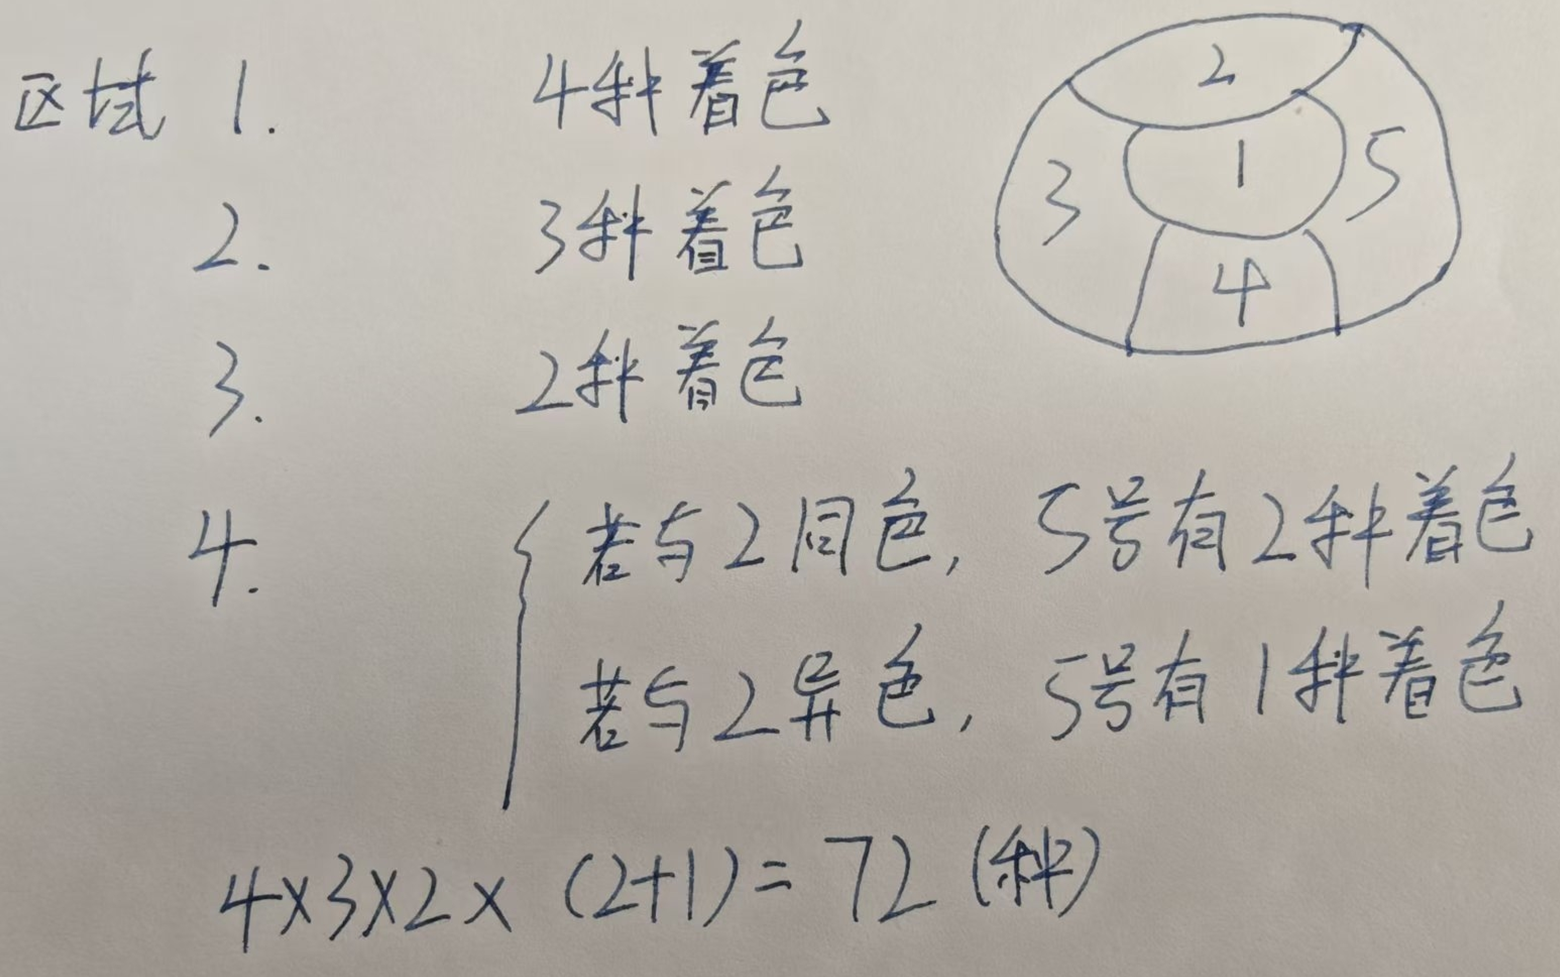 区域 1. 4种着色
2. 3种着色
3. 2种着色
4. { 若与2同色, 5号有2种着色
若与2异色, 5号有1种着色
4×3×2×(2+1)=72(种)
2
1
3
5
4